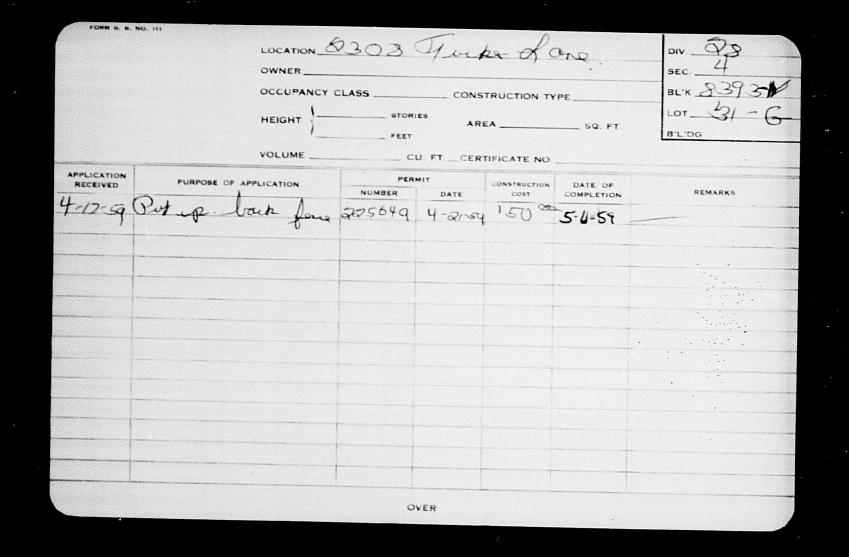 FORM B. B. NO. 111
LOCATION 2303 Tucker Lane
OWNER
OCCUPANCY CLASS CONSTRUCTION TYPE
HEIGHT STORIES AREA SQ. FT
FEET
VOLUME CU. FT. CERTIFICATE NO.
DIV 28
SEC 4
BL'K 8393
LOT 31-G
B'L'DG
APPLICATION RECEIVED PURPOSE OF APPLICATION PERMIT NUMBER DATE CONSTRUCTION COST DATE OF COMPLETION REMARKS
4-17-59 Put up back fence 225649 4-21-59 150 00 5-4-59
OVER